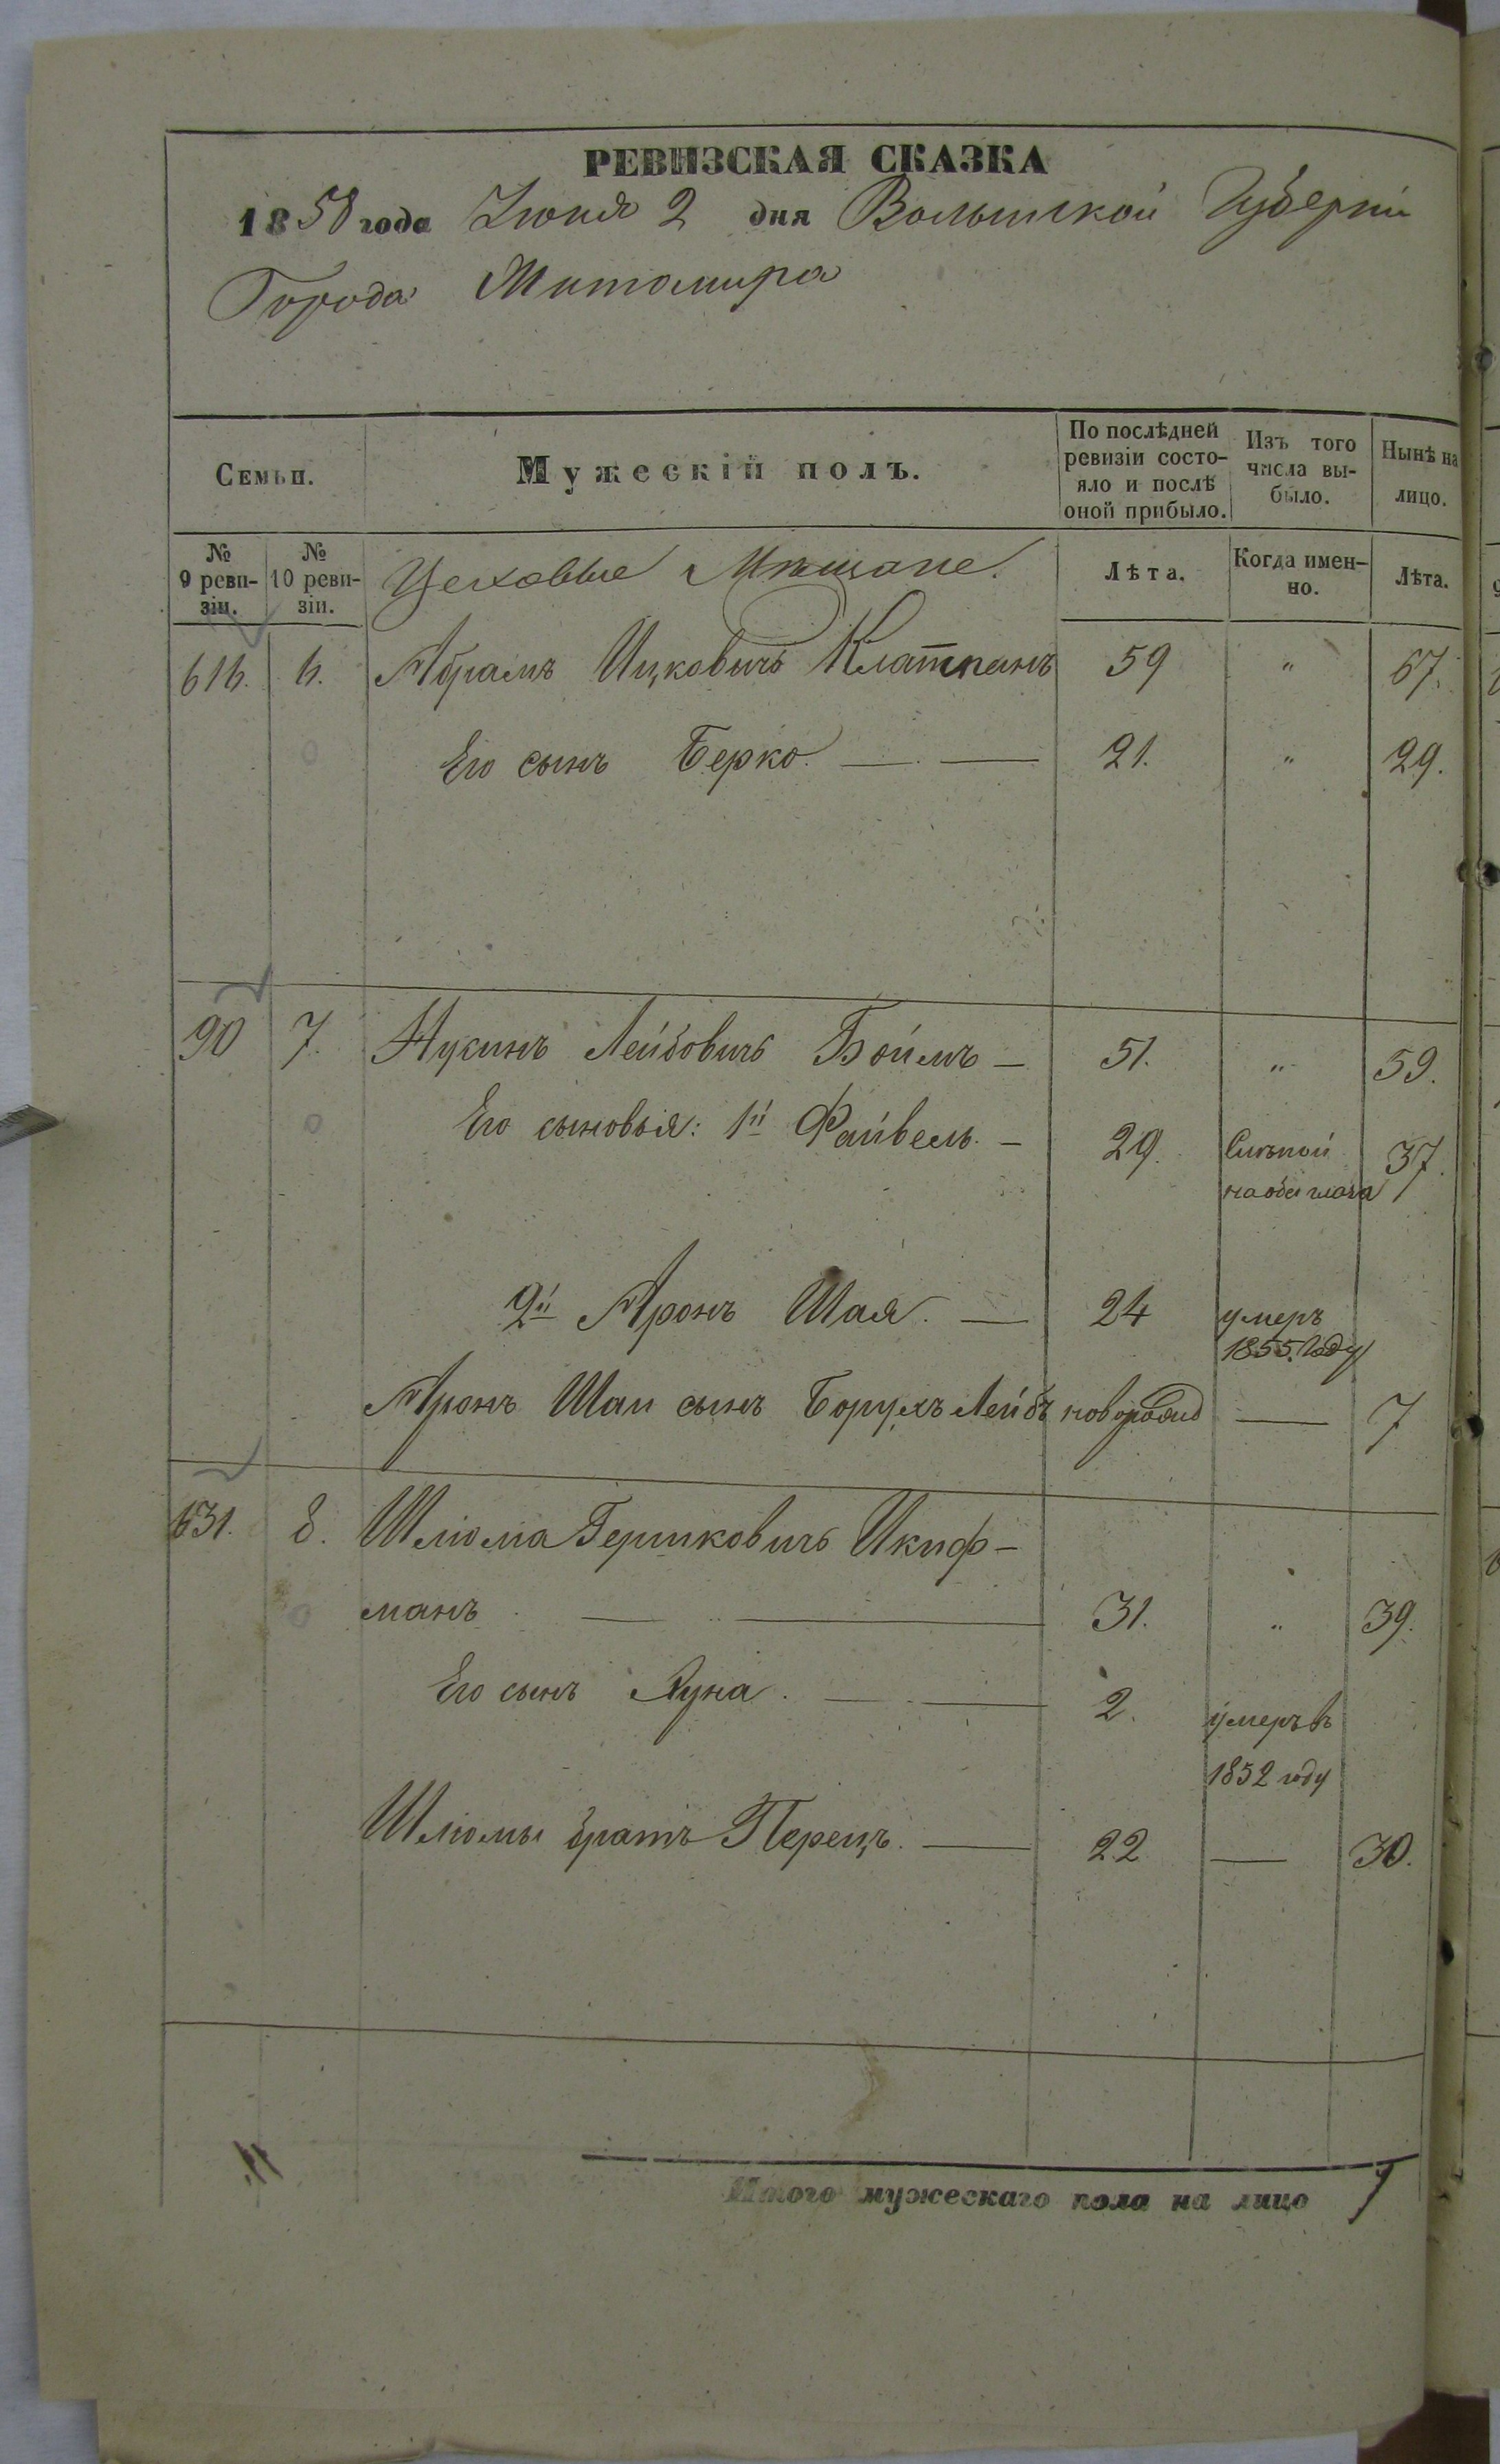 РЕВИЗСКАЯ СКАЗКА
1858 года Іюня 2 дня Волынской Губерніи
Города Житомира
Семьи. Мужескій полъ. По послѣдней ревизіи состо-яло и послѣ оной прибыло. Изъ того числа вы-было. Нынѣ на лицо.
№ 9 реви-зіи. № 10 реви-зіи. Цеховые Мѣщане. Лѣта. Когда имен-но. Лѣта.
616. 6. Абрамъ Ицковичъ 59 " 67.
Его сынъ Берко. 21. " 29.
90 7. Нусинъ Лейбовичъ Боймъ — 51. " 59.
Его сыновья: 1й Файвель. — 29. Слѣпой 37.
на оба глаза
2й Аронъ Шая. — 24 умеръ
1855. году
Аронъ Шаи сынъ Борухъ Лейбъ новорожд — 7
631. 8. Шлюома Гершковичъ
манъ — 31. " 39.
Его сынъ — 2. умеръ въ
1852 году
Шлюомы братъ Перецъ. — 22 — 30.
Итого мужескаго пола на лицо 7